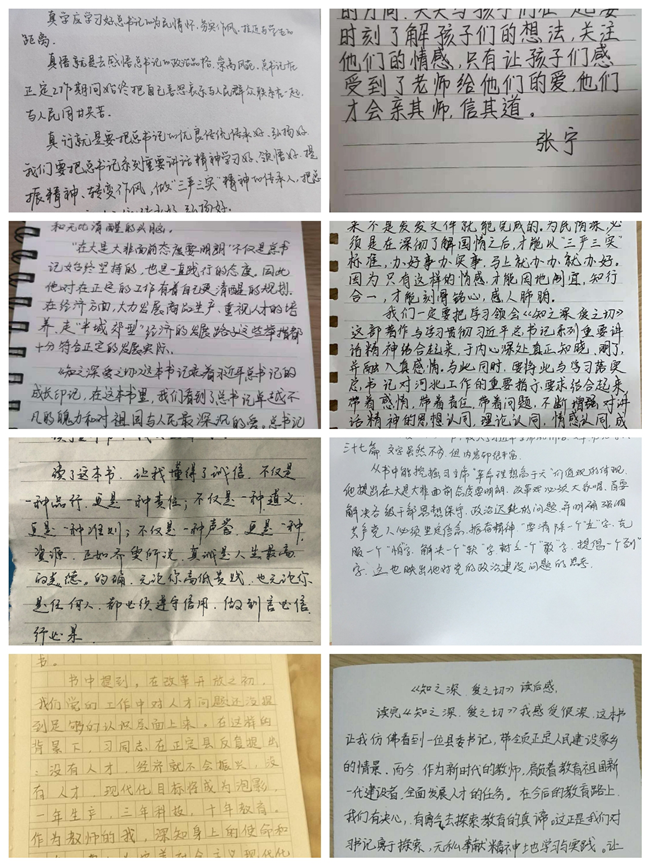 真学应学习好总书记的为民情怀、务实作风、
距离。
真悟就是去感悟总书记的政治品格、崇高风范，总书记在
正定工作期间始终把自己喜怒哀乐与人民群众联系在一起，
与人民同甘共苦。
真讨就是要把总书记的优良传统传承好、弘扬好
我们要把总书记系列重要讲话精神学习好、领悟好，提
振精神、转变作风，做“三严三实”精神的传承人，把总
时刻了解孩子们的想法，关注
他们的情感，只有让孩子们感
受到了老师给他们的爱，他们
才会亲其师，信其道。
张宁
和无比清醒的头脑。
“在大是大非面前态度要明朗”不仅是总书
记始终坚持的，也是一直践行的态度。因此
他对在正定的工作有着自己更清醒的规划。
在经济方面，大力发展商品生产、重视人才的培
养、走“半城郊型”经济的发展路子这些举措都
十分符合正定的发展实际。
《知之深爱之切》这本书记录着习近平总书记的
成长印记，在这本书里，我们看到了总书记卓越不
凡的魄力和对祖国与人民最深沉的爱。总书记
来不是发发文件就能完成的。为民情深，必
须是在深彻了解国情之后，才能以“三严三实”
标准，办好事办实事，马上就办办就办好。
因为只有这样的情感，才能因地制宜，知行
合一，才能刻骨铭心，感人肺腑。
我们一定要把学习领会《知之深 爱之切》
这部著作与学习贯彻习近平总书记系列重要讲
话精神结合起来，于内心深处真正知晓、
并融入真感情，与此同时，要持此与学习落实
总书记对河北工作的重要指示、要求结合起来
带着感情，带着责任，带着问题，不断增强对讲
话精神的思想认同，理论认同，情感认同，成
读了这本书，让我懂得了诚信，不仅是
一种品行，更是一种责任；不仅是一种道义，
更是一种准则；不仅是一种声誉，更是一种
资源。正如乔叟所说：真诚是人生最高
的美德。的确，无论你高低贵贱，也无论你
是任何人，都必须遵守信用，做到言必信
行必果
三十七篇，文字虽然不多，但内容却很丰富。
从书中能挖掘习主席“革命理想高于天”的值观的体现，
他提出在大是大非面前态度要明朗，改革必须大合唱，首要
解决各级干部思想保守、政治迟钝的问题，并明确强调
共产党人必须坚定信念，振奋精神，“要清除一个‘左’字，克
服一个‘怕’字，解决一个‘软’字，树立一个‘敢’字，提倡一个‘创’
字”，这也映出他对党的政治建设问题的思考。
书。
书中提到，在改革开放之初，
我们党的工作中对人才问题还没提
到足够的认识层面上来。在这样的
背景下，习同志在正定县反复提出
：没有人才，经济就不会振兴，没
有人才，现代化目标将成为泡影。
一年生产，三年科技，十年教育。
作为教师的我，深知身上的使命和
《知之深、爱之切》读后感。
读完《知之深、爱之切》我感受很深，这本书
让我仿佛看到一位县委书记，带领正定人民建设家乡
的情景。而今，作为新时代的教师，肩负着教育祖国新
一代建设者，全面发展人才的任务。在今后的教育路上，
我们有决心，有勇气去探索教育的真谛。这正是我们对
习书记勇于探索，无私奉献精神上也学习与实践。让